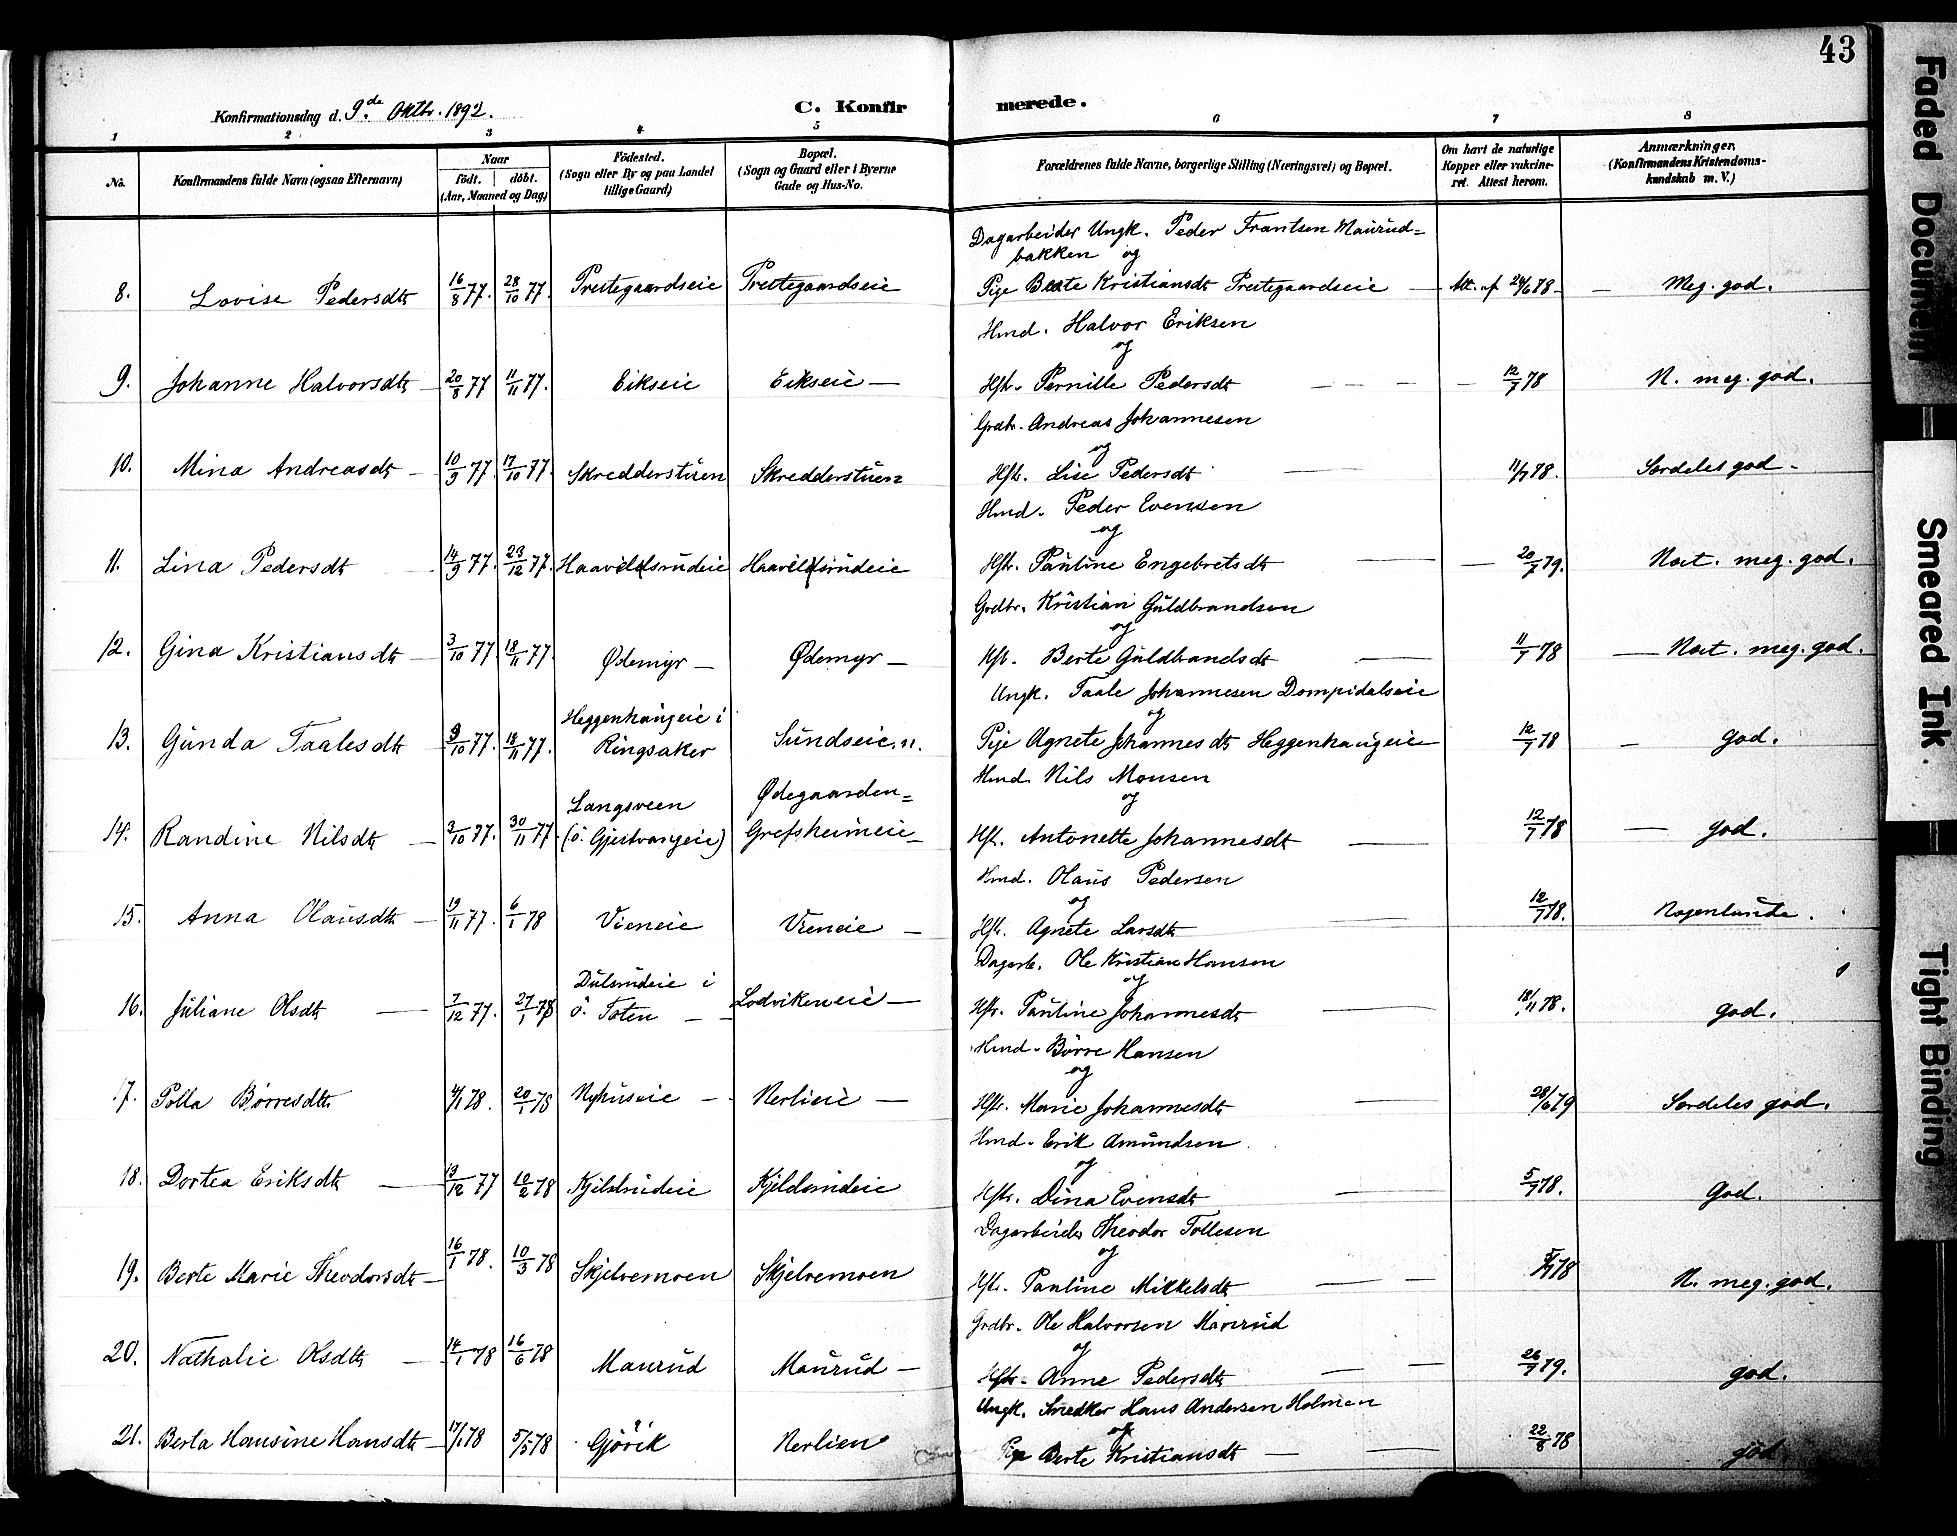 43
Konfirmationsdag d. 9de Oktbr. 1892.
C. Konfirmerede.
1 2 3 4 5 6 7 8
No.
Konfirmandens fulde Navn (ogsaa Efternavn)
Naar
født. døbt.
(Aar, Maaned og Dag)
Fødested.
(Sogn eller By og paa Landet
tillige Gaard)
Bopæl.
(Sogn og Gaard eller i Byerne
Gade og Hus-No.
Forældrenes fulde Navne, borgerlige Stilling (Næringsvei) og Bopæl.
Om havt de naturlige
Kopper eller vakcine-
ret. Attest herom.
Anmærkninger.
(Konfirmandens Kristendoms-
kundskab m. V.)
Dagarbeider Ungk. Peder Frantsen Maurud=
bakken og
8. Lovise Pedersdtr 16/8 77. 28/10 77. Prestegaardseie Prestegaardseie Pige Beate Kristiansdtr Prestegaardseie — Att. af 24/6 78 — Meg. god.
Hmd. Halvor Eriksen
og
9. Johanne Halvorsdtr — 20/8 77 11/11 77. Eikseie Eikseie — Hstr. Pernille Pedersdtr — — — 12/7 78 N. meg. god.
Grdbr. Andreas Johannesen
og
10. Mina Andreasdtr — 10/9 77 17/10 77. Skredderstuen Skredderstuen Hstr. Lise Pedersdtr — 11/7 78. Særdeles god —
Hmd. Peder Evensen
og
11. Lina Pedersdtr — 14/9 77. 23/12 77. Haaveldsrudeie Haaveldsrudeie Hstr. Pauline Engebretsdtr — 20/7 79. Næst. meg. god.
Grdbr. Kristian Guldbrandsen
og
12. Gina Kristiansdtr — 3/10 77. 18/11 77. Ødemyr — Ødemyr — Hst. Berte Guldbrandsdtr — 11/7 78 — Næst. meg. god.
Ungk. Taale Johannesen Dompidalseie
og
Heggenhaugeie i
13. Gunda Taalesdtr 9/10 77. 18/11 77. Ringsaker Sundseie. n. Pige Agnete Johannesdtr Heggenhaugeie 12/7 78 — god.
Hmd. Nils Monsen
og
Langsveen Ødegaarden=
14. Randine Nilsdtr — 2/10 77. 30/11 77 (ø. Gjestvangeie) Grefsheimeie — Hst. Antonette Johannesdtr — 12/7 78 — god.
Hmd. Olaus Pedersen
og
15. Anna Olausdtr — 19/11 77. 6/1 78 Vieneie Vieneie — Hstr. Agnete Larsdtr — 12/7 78. Nogenlunde.
Dagarb. Ole Kristian Hansen
og
Dulsrudeie i
16. Juliane Olsdtr — 7/12 77. 27/1 78 Ø. Toten — Lodvikeneie — Hstr. Pauline Johannesdtr — 18/11 78. god.
Hmd. Børre Hansen
og
17. Polla Børresdtr 4/1 78. 20/1 78 Nyhuseie — Nerlieie — Hstr. Marie Johannesdtr — 28/6 79 Særdeles god.
Hmd. Erik Amundsen
og
18. Dortea Eriksdtr — 19/12 77 10/2 78 Kjelsrudeie Kjeldsrudeie Hstr. Dina Evensdtr — 5/7 78. God.
Dagarbeider Theodor Tollesen
og
19. Berte Marie Theodorsdtr — 16/1 78. 10/3 78 Skjelvemoen Skjelvemoen Hstr. Pauline Mikkelsdtr — — 5/7 78 N. meg. god.
Grdbr. Ole Halvorsen Maurud
og
20. Nathalie Olsdtr — 14/1 78 16/6 78 Maurud Maurud — Hstr. Anne Pedersdtr — — 26/7 79. god.
Ungk. Snedker Hans Andersen Holmen
og
21. Berta Hansine Hansdtr — 17/1 78 5/5 78 Gjövik Nerlien Pige Berte Kristiansdtr — — 22/8 78 god.
Faded Document
Smeared Ink.
Tight Binding